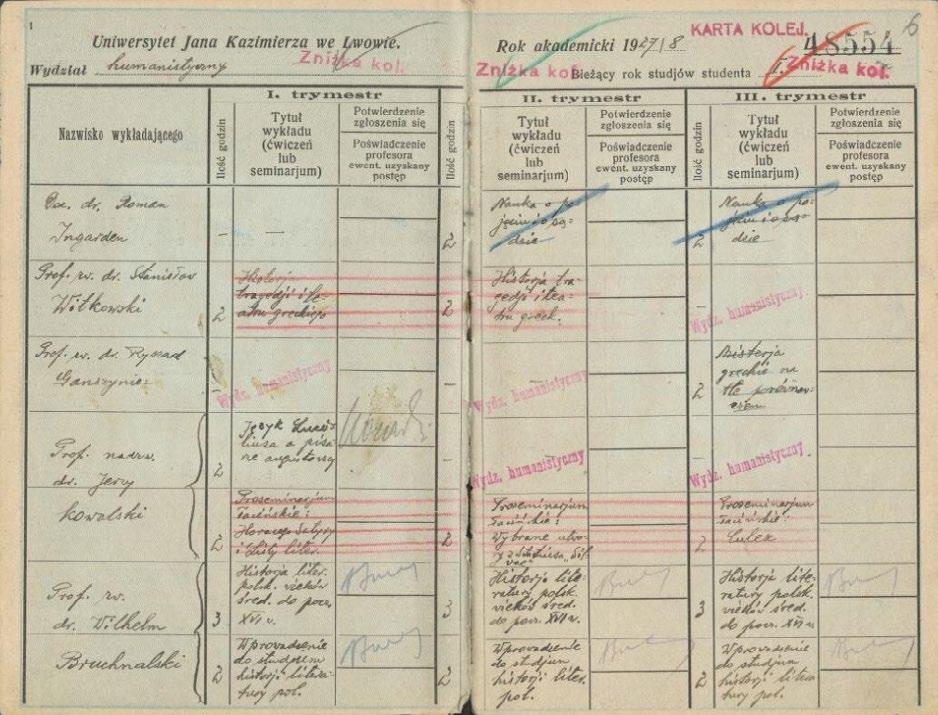 1
Uniwersytet Jana Kazimierza we Lwowie.
Wydział humanistyczny
Zniżka kol.
Rok akademicki 1927/8
KARTA KOLEJ.
48554
6
Zniżka kol.
Bieżący rok studjów studenta I.
Zniżka kol.
Nazwisko wykładającego
I. trymestr
Ilość godzin
Tytuł wykładu (ćwiczeń lub seminarjum)
Potwierdzenie zgłoszenia się
Poświadczenie profesora ewent. uzyskany postęp
Ilość godzin
II. trymestr
Tytuł wykładu (ćwiczeń lub seminarjum)
Potwierdzenie zgłoszenia się
Poświadczenie profesora ewent. uzyskany postęp
Ilość godzin
III. trymestr
Tytuł wykładu (ćwiczeń lub seminarjum)
Potwierdzenie zgłoszenia się
Poświadczenie profesora ewent. uzyskany postęp
Doc. dr. Roman
Ingarden
2
Nauka o po-
jęciu i o są-
dzie
2
Nauka o po-
jęciu i o są-
dzie
Prof. zw. dr. Stanisław
Witkowski
2
Historja
tragedji i te-
atru greckiego
2
Historja tra-
gedji i tea-
tru grec.
Wydz. humanistyczny
Prof. zw. dr. Ryszard
Wydz. humanistyczny
Wydz. humanistyczny
2
greckie na
tle
Prof. nadzw.
dr. Jerzy
Kowalski
2
Język Luci-
liusa a pisa-
rze augustowscy
Wydz. humanistyczny
Wydz. humanistyczny
2
Proseminarjum
łacińskie:
Horacego Satyry
i Listy liter.
2
Proseminarjum
łacińskie:
Wybrane utwo-
ry z Statiusa „Sil-
vae"
2
Proseminarjum
łacińskie:
Culex
Prof. zw.
dr. Wilhelm
Bruchnalski
3
Historja liter.
polsk. wieków
śred. do pocz.
XVI w.
3
Historja lite-
ratury polsk.
wieków śred.
do pocz. XVI w.
3
Historja lite-
ratury polsk.
wieków śred.
do pocz. XVI w.
2
Wprowadzenie
do studjum
historji litera-
tury pol.
2
Wprowadzenie
do studjum
historji liter.
pol.
2
Wprowadzenie
do studjum
historji litera-
tury pol.